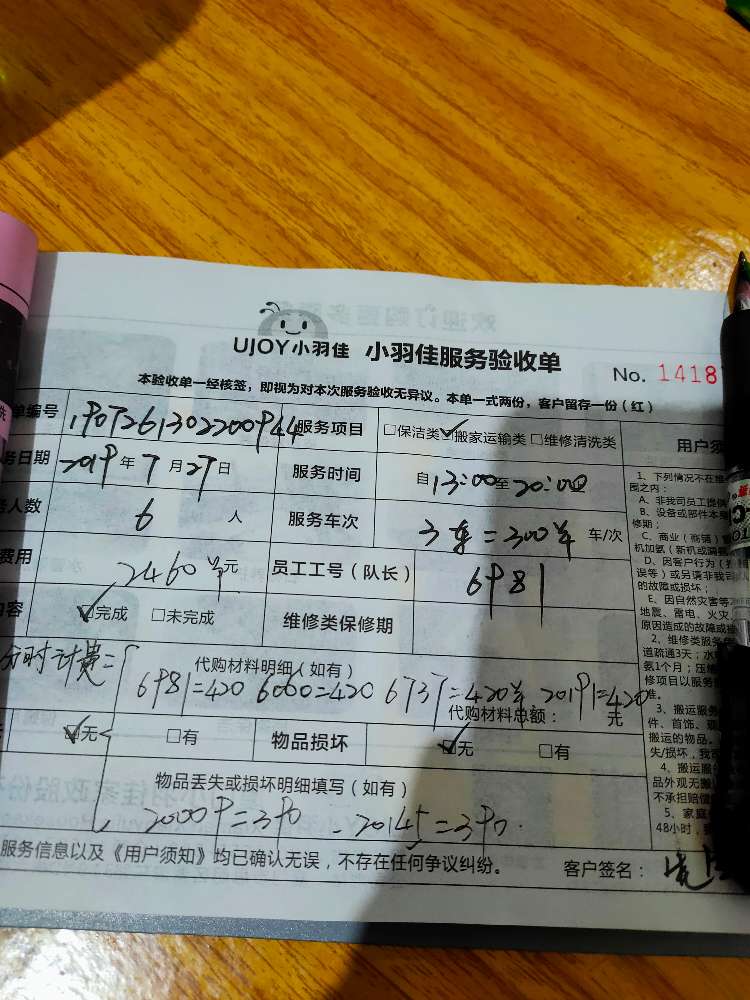 UJOY小羽佳 小羽佳服务验收单 No. 1418
本验收单一经核签，即视为对本次服务验收无异议。本单一式两份，客户留存一份（红）
单编号 1907261302200944 服务项目 □保洁类 ☑搬家运输类 □维修清洗类 用户须
务日期 2019年7月27日 服务时间 自13:00至20:00
人数 6 人 服务车次 3车=300半 车/次
费用 2460半元 员工工号（队长） 6981
内容 ☑完成 □未完成 维修类保修期
分时计费=
代购材料明细（如有）
6981=420 6060=420 6737=420半 20191=420
代购材料总额： 元
☑无 □有 物品损坏 ☑无 □有
物品丢失或损坏明细填写（如有）
20009=390 - 20145=390.
服务信息以及《用户须知》均已确认无误，不存在任何争议纠纷。 客户签名：
1、下列情况不在维
围之内：
A、非我司员工提供
B、设备或部件本身
修期；
C、商业（商铺）
机加氨（新机或漏氨
D、因客户行为（
误等）或另请非我司
的故障或损坏；
E、因自然灾害等
地震、雷电、火灾、
原因造成的故障或损
2、维修类服务
道疏通3天；水
氨1个月；压缩
修项目以服务
准。
3、搬运服务
件、首饰、
搬运的物品。
失/损坏，我
4、搬运服
品外观无搬
不承担赔偿
5、家庭
48小时，